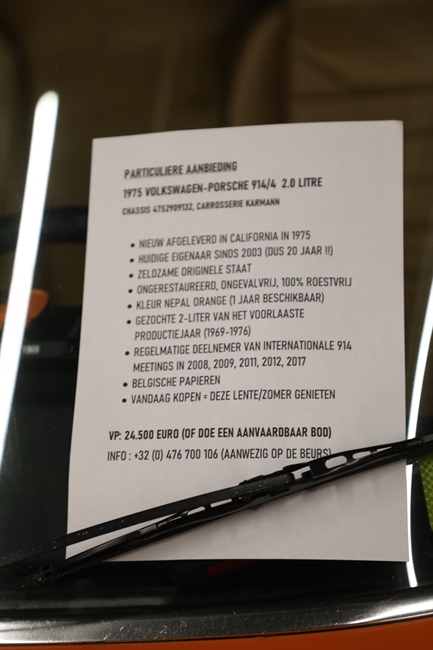 PARTICULIERE AANBIEDING
1975 VOLKSWAGEN-PORSCHE 914/4 2.0 LITRE
CHASSIS 4752909132, CARROSSERIE KARMANN
• NIEUW AFGELEVERD IN CALIFORNIA IN 1975
• HUIDIGE EIGENAAR SINDS 2003 (DUS 20 JAAR !!)
• ZELDZAME ORIGINELE STAAT
• ONGERESTAUREERD, ONGEVALVRIJ, 100% ROESTVRIJ
• KLEUR NEPAL ORANGE (1 JAAR BESCHIKBAAR)
• GEZOCHTE 2-LITER VAN HET VOORLAASTE
PRODUCTIEJAAR (1969-1976)
• REGELMATIGE DEELNEMER VAN INTERNATIONALE 914
MEETINGS IN 2008, 2009, 2011, 2012, 2017
• BELGISCHE PAPIEREN
• VANDAAG KOPEN = DEZE LENTE/ZOMER GENIETEN
VP: 24.500 EURO (OF DOE EEN AANVAARDBAAR BOD)
INFO : +32 (0) 476 700 106 (AANWEZIG OP DE BEURS)